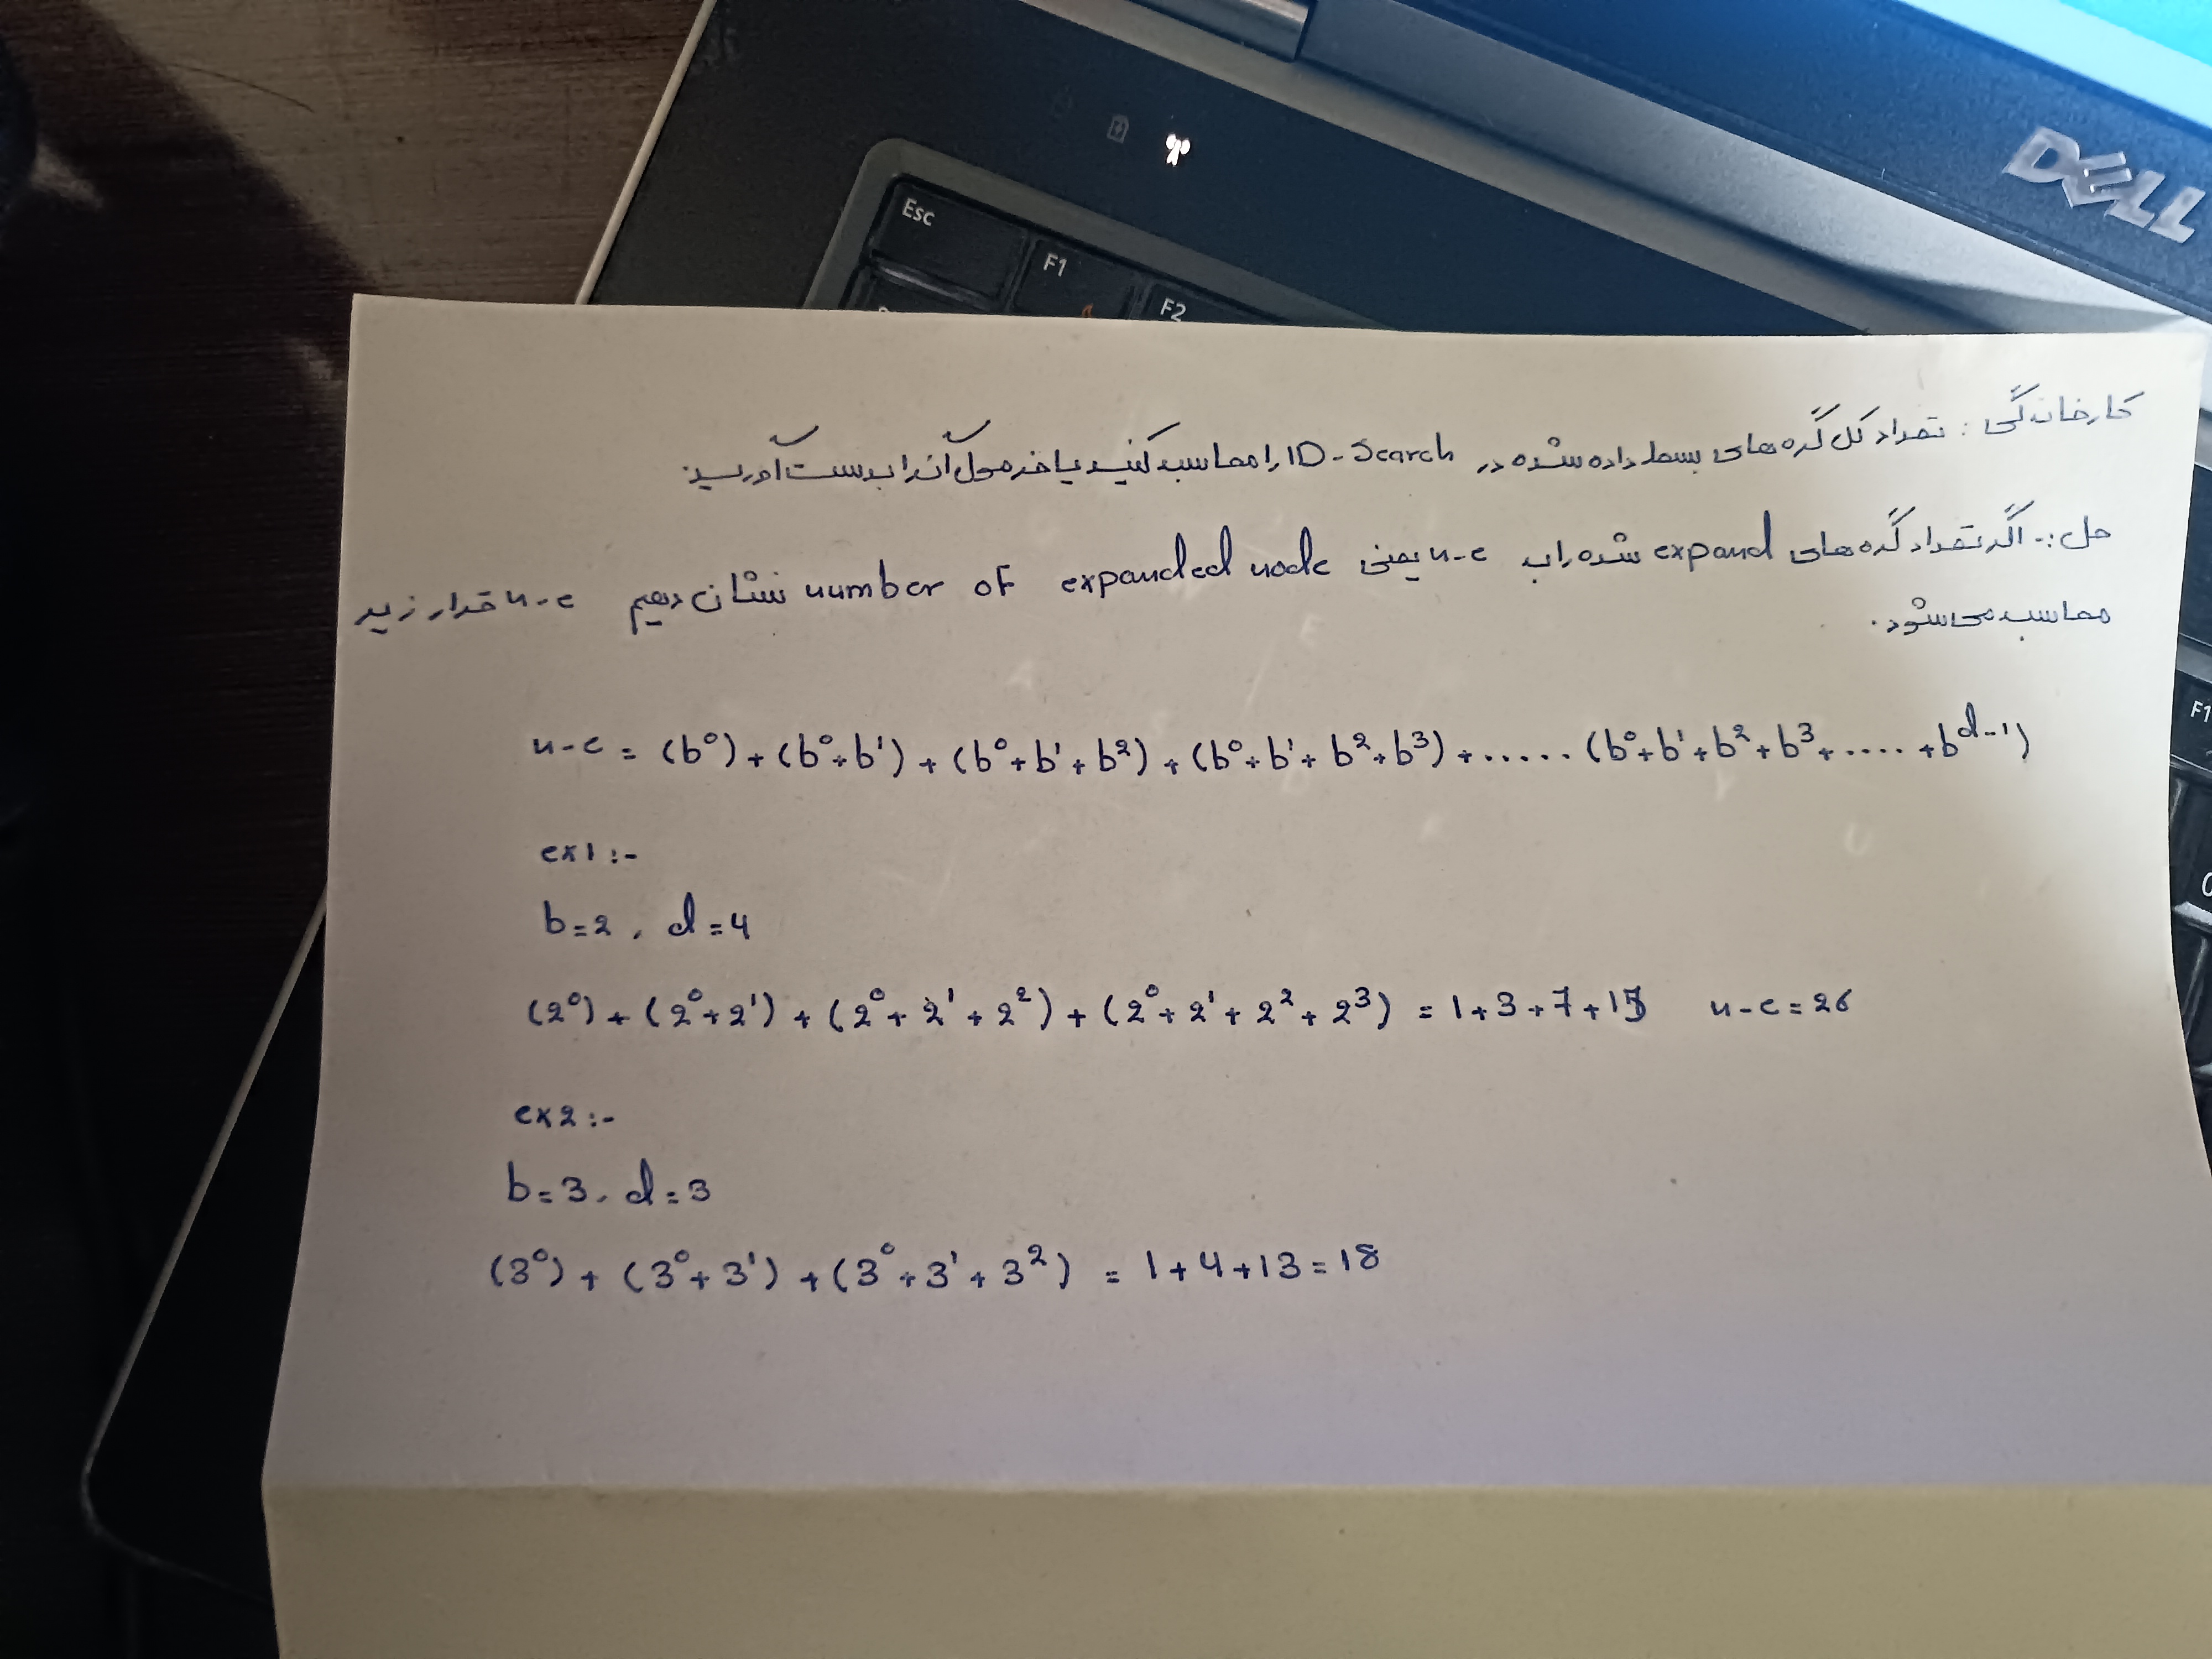 DELL
Esc
F1
F2
کارخانگی : تعداد کل گره های بسط داده شده در ID-Search را محاسبه کنید یا فرمول آنرا بدست آورید
حل :- اگر تعداد گره های expand شده را به n-e یعنی number of expanded node نشان دهیم n-e قرار زیر
محاسبه می شود.
n-e = (b⁰) + (b⁰+b¹) + (b⁰+b¹+b²) + (b⁰+b¹+b²+b³) + ...... (b⁰+b¹+b²+b³+ .... +b^(d-1))
ex1 :-
b=2 , d=4
(2⁰) + (2⁰+2¹) + (2⁰+2¹+2²) + (2⁰+2¹+2²+2³) = 1+3+7+15 n-e=26
ex2 :-
b=3 , d=3
(3⁰) + (3⁰+3¹) + (3⁰+3¹+3²) = 1+4+13=18
F1